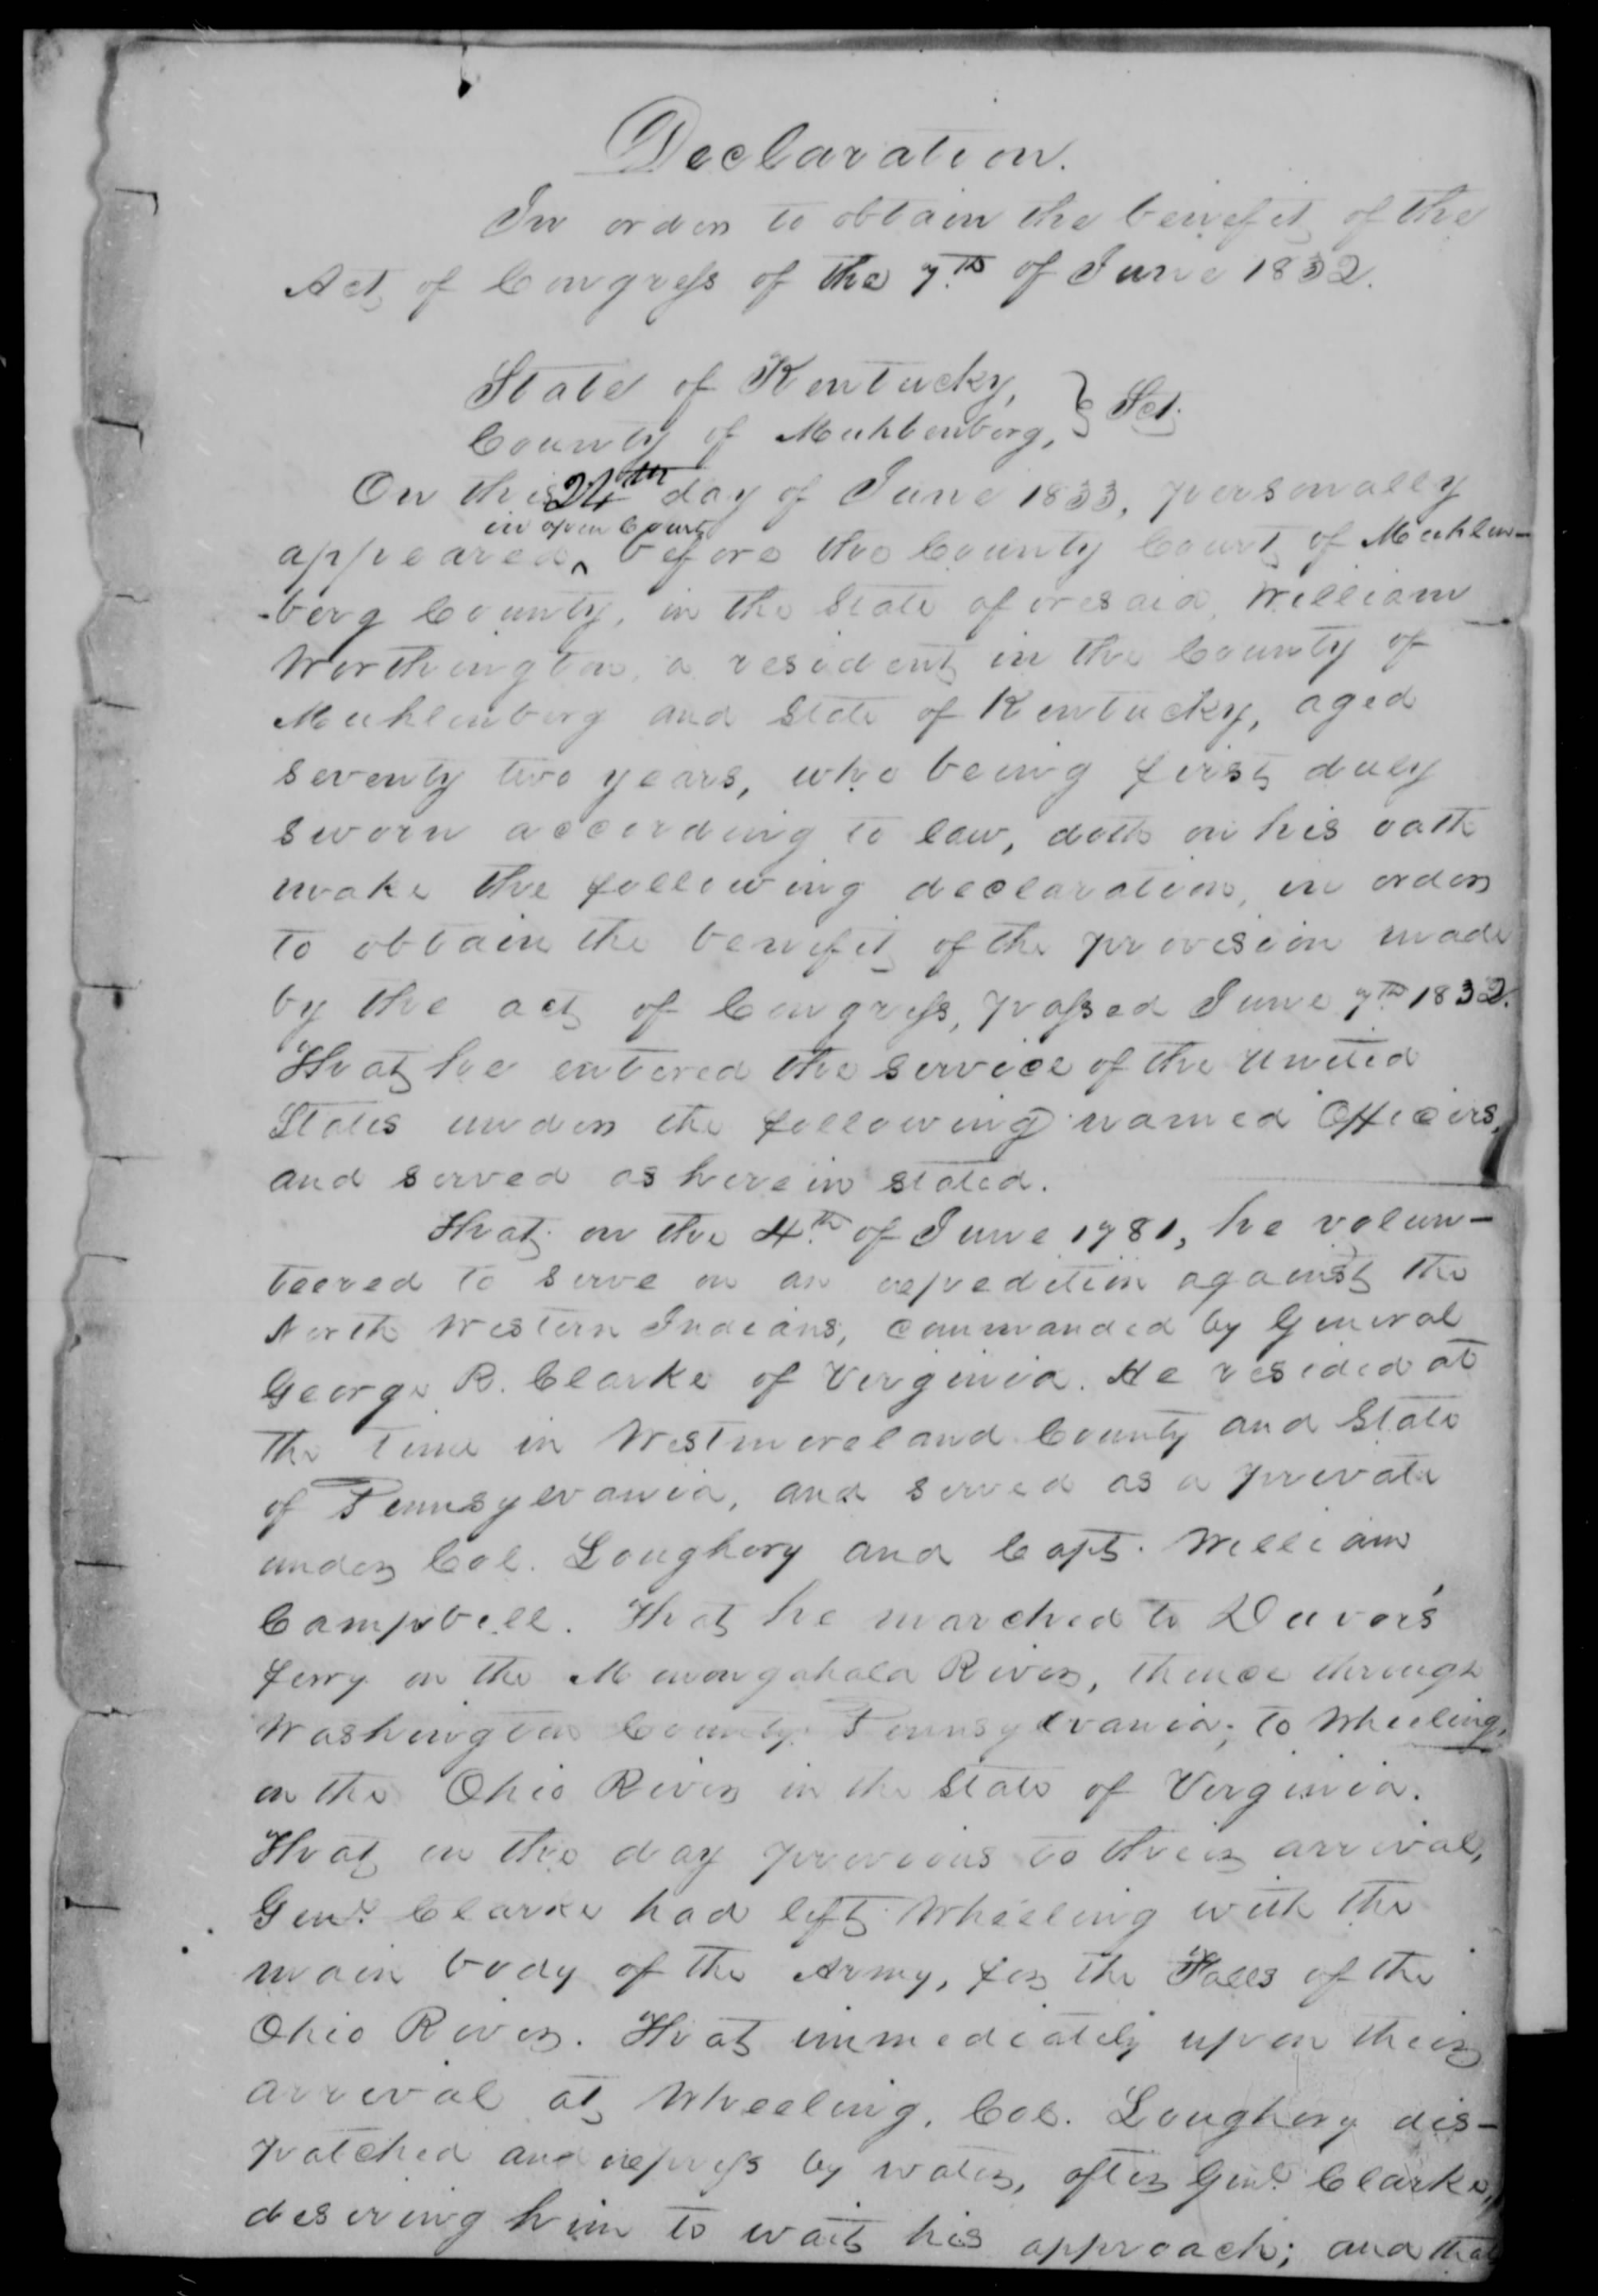 Declaration.
In order to obtain the benefit of the
Act of Congress of the 7th of June 1832.
State of Kentucky, } Sct.
County of Muhlenberg,
On this 24th day of June 1833, personally
in open Court
appeared ^ before the County Court of Muhlen-
-berg County, in the State aforesaid, William
Worthington, a resident in the County of
Muhlenberg and State of Kentucky, aged
seventy two years, who being first duly
sworn according to law, doth on his oath
make the following declaration, in order
to obtain the benefit of the provision made
by the act of Congress, passed June 7th 1832.
That he entered the service of the United
States under the following named Officers,
and served as herein stated.
That on the 4th of June 1781, he volun-
teered to serve on an expedition against the
North Western Indians, commanded by General
George R. Clarke of Virginia. He resided at
the time in Westmoreland County and State
of Pennsylvania, and served as a private
under Col. Loughery and Capt. William
Campbell. That he marched to Devor's
ferry on the Monongahala River, thence through
Washington County Pennsylvania, to Wheeling,
on the Ohio River in the State of Virginia.
That on the day previous to their arrival,
Genl. Clarke had left Wheeling with the
main body of the Army, for the Falls of the
Ohio River. That immediately upon their
arrival at Wheeling, Col. Loughery dis-
patched and express by water, after Genl. Clarke,
desiring him to wait his approach; and that